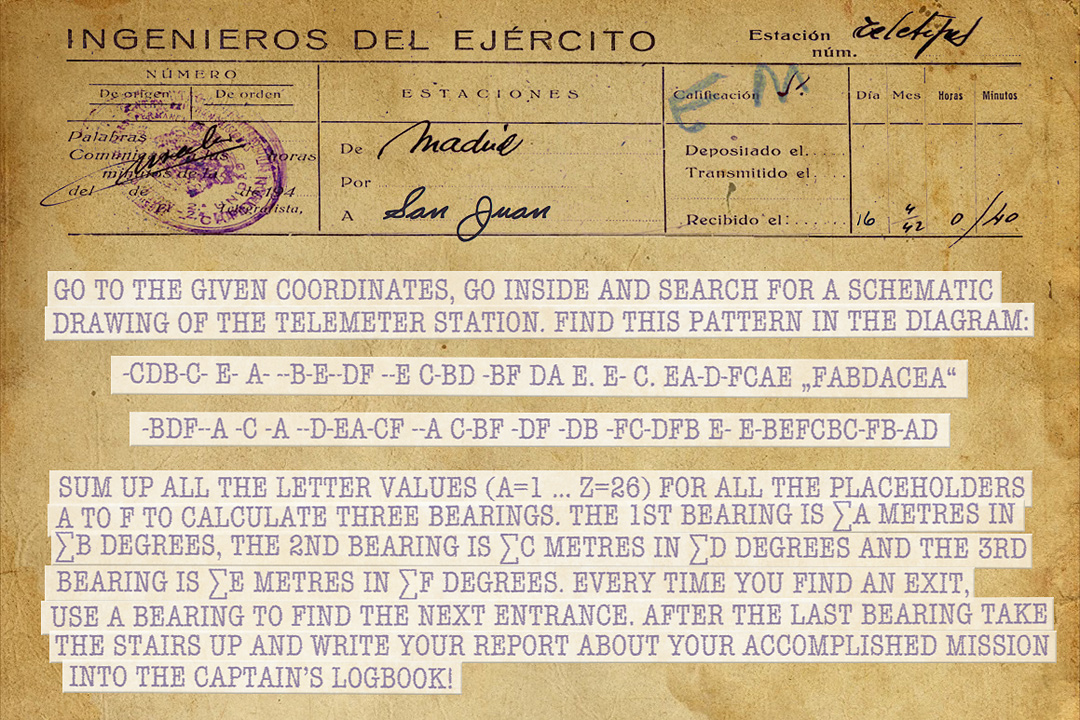 INGENIEROS DEL EJÉRCITO
Estación núm. teletipos
NÚMERO
De origen De orden
ESTACIONES
Calificación
Día Mes Horas Minutos
Palabras
horas
minutos de las
del de de 194
De Madrid
Por
A San Juan
Depositado el
Transmitido el
Recibido el: 16 4/42 0/40
EM
GO TO THE GIVEN COORDINATES, GO INSIDE AND SEARCH FOR A SCHEMATIC
DRAWING OF THE TELEMETER STATION. FIND THIS PATTERN IN THE DIAGRAM:
-CDB-C- E- A- --B-E--DF --E C-BD -BF DA E. E- C. EA-D-FCAE „FABDACEA“
-BDF--A -C -A --D-EA-CF --A C-BF -DF -DB -FC-DFB E- E-BEFCBC-FB-AD
SUM UP ALL THE LETTER VALUES (A=1 ... Z=26) FOR ALL THE PLACEHOLDERS
A TO F TO CALCULATE THREE BEARINGS. THE 1ST BEARING IS ∑A METRES IN
∑B DEGREES, THE 2ND BEARING IS ∑C METRES IN ∑D DEGREES AND THE 3RD
BEARING IS ∑E METRES IN ∑F DEGREES. EVERY TIME YOU FIND AN EXIT,
USE A BEARING TO FIND THE NEXT ENTRANCE. AFTER THE LAST BEARING TAKE
THE STAIRS UP AND WRITE YOUR REPORT ABOUT YOUR ACCOMPLISHED MISSION
INTO THE CAPTAIN'S LOGBOOK!